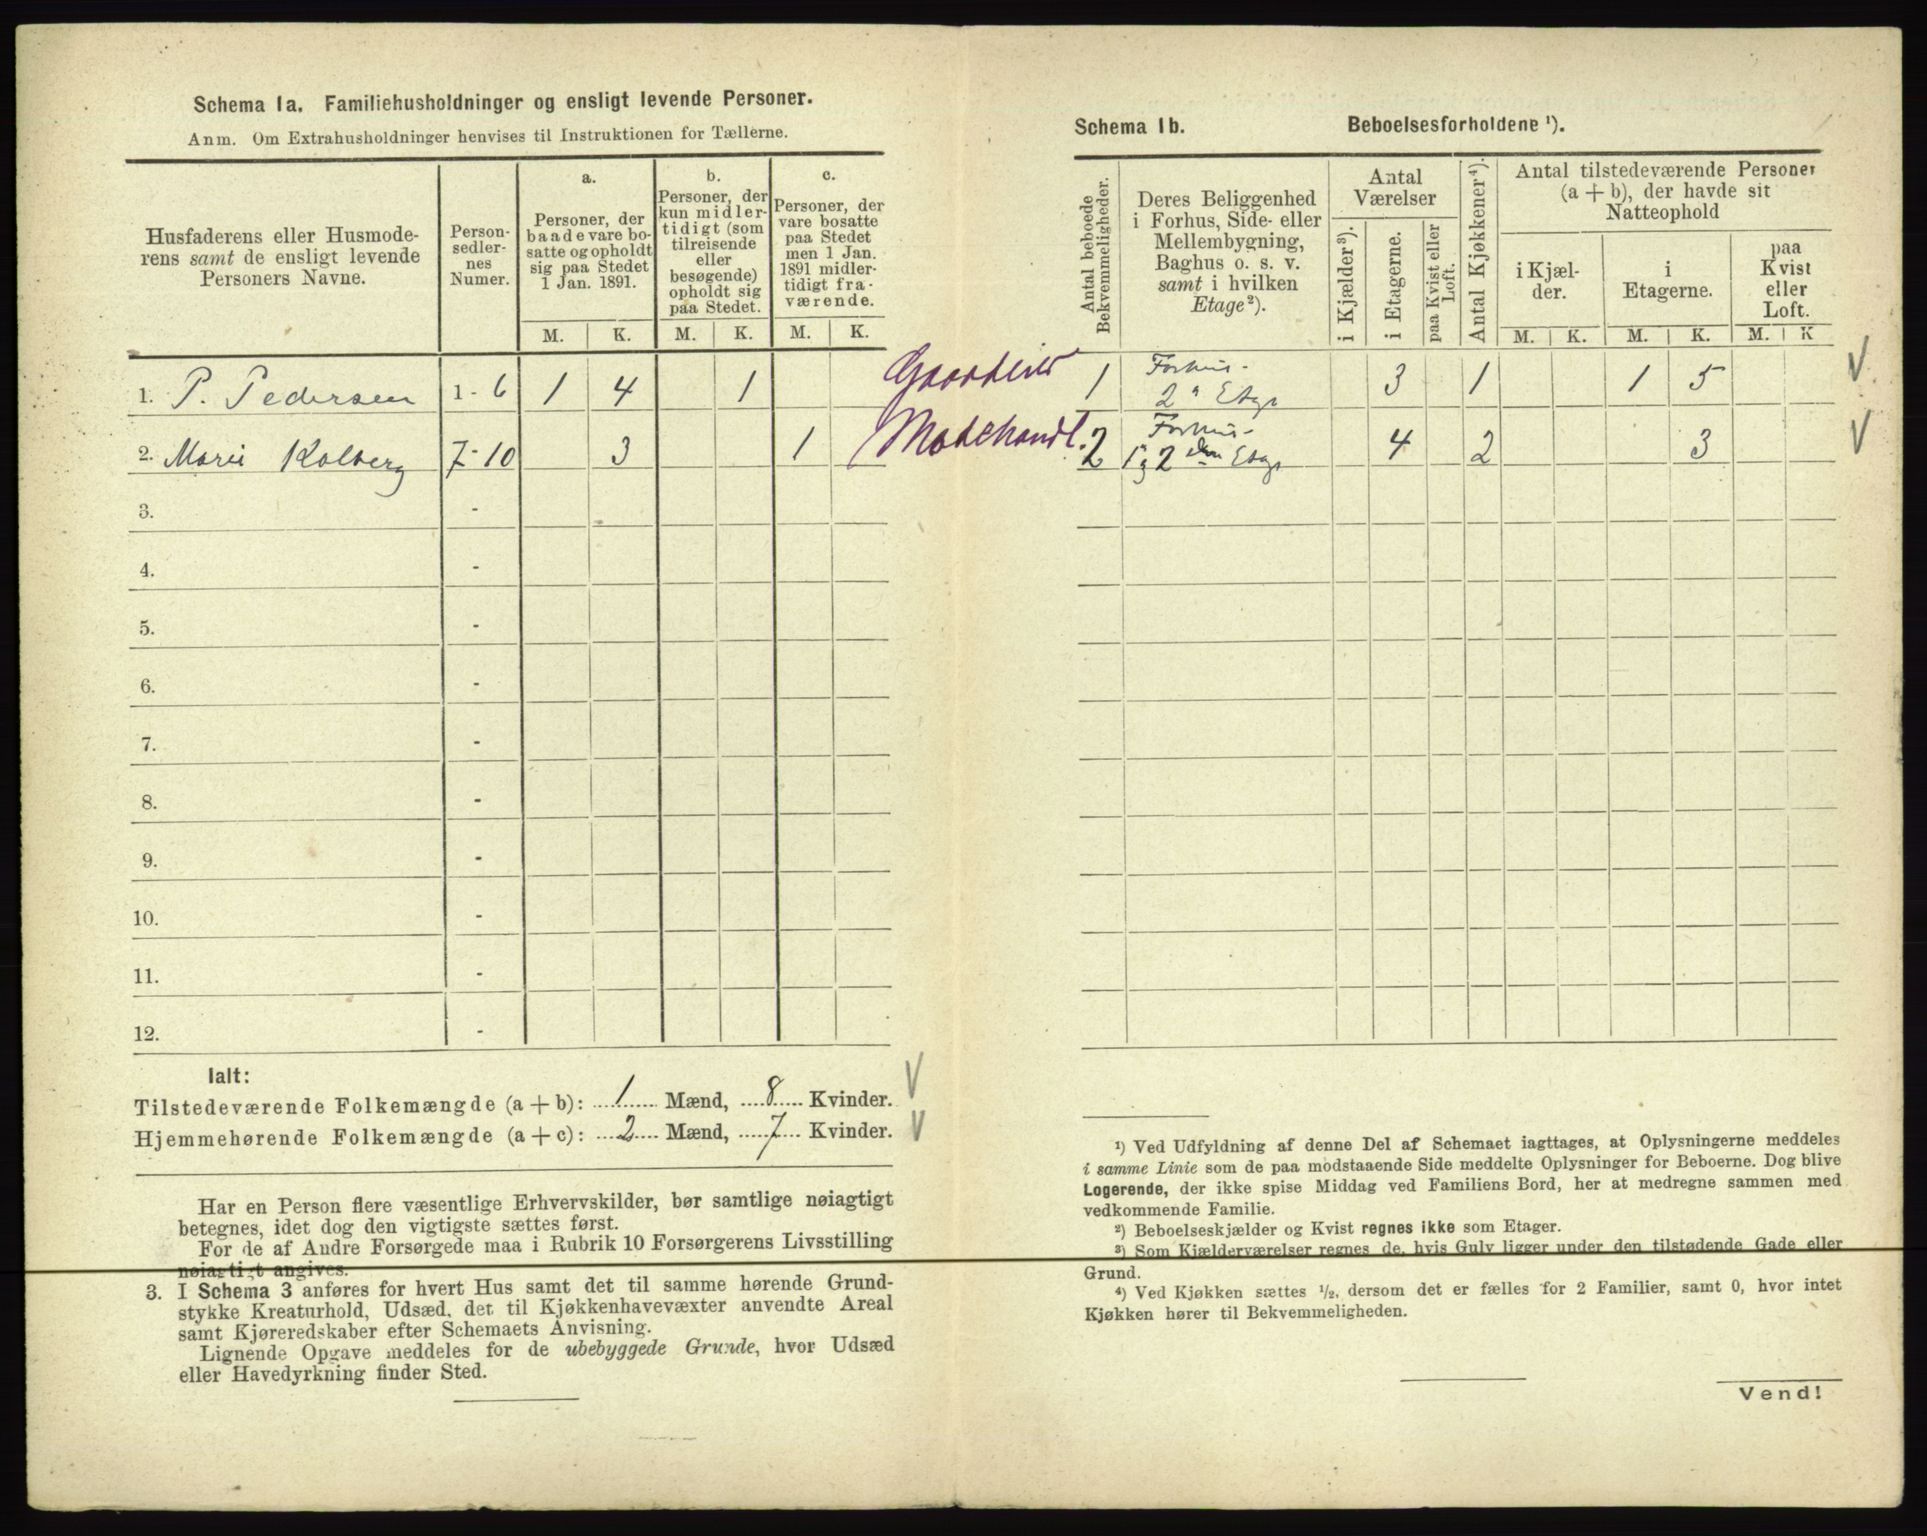 Schema 1a. Familiehusholdninger og ensligt levende Personer.
Anm. Om Extrahusholdninger henvises til Instruktionen for Tællerne.
Husfaderens eller Husmode-
rens samt de ensligt levende
Personers Navne.
Person-
sedler-
nes
Numer.
a.
Personer, der
baade vare bo-
satte og opholdt
sig paa Stedet
1 Jan. 1891.
b.
Personer, der
kun midler-
tidigt (som
tilreisende
eller
besøgende)
opholdt sig
paa Stedet.
c.
Personer, der
vare bosatte
paa Stedet
men 1 Jan.
1891 midler-
tidigt fra-
værende.
M. K. M. K. M. K.
1. P. Pedersen 1-6 1 4 1
2. Marie Kolberg 7-10 3 1
3. -
4. -
5. -
6. -
7. -
8. -
9. -
10. -
11. -
12. -
Ialt:
Tilstedeværende Folkemængde (a + b): 1 Mænd, 8 Kvinder. V
Hjemmehørende Folkemængde (a + c): 2 Mænd, 7 Kvinder. V
Har en Person flere væsentlige Erhvervskilder, bør samtlige nøiagtigt
betegnes, idet dog den vigtigste sættes først.
For de af Andre Forsørgede maa i Rubrik 10 Forsørgerens Livsstilling
nøiagtigt angives.
3. I Schema 3 anføres for hvert Hus samt det til samme hørende Grund-
stykke Kreaturhold, Udsæd, det til Kjøkkenhavevæxter anvendte Areal
samt Kjøreredskaber efter Schemaets Anvisning.
Lignende Opgave meddeles for de ubebyggede Grunde, hvor Udsæd
eller Havedyrkning finder Sted.
Schema 1b. Beboelsesforholdene ¹).
Antal beboede
Bekvemmeligheder.
Deres Beliggenhed
i Forhus, Side- eller
Mellembygning,
Baghus o. s. v.
samt i hvilken
Etage²).
Antal
Værelser
i Kjælder ³).
i Etagerne.
paa Kvist eller
Loft.
Antal Kjøkkener ⁴).
Antal tilstedeværende Personer
(a + b), der havde sit
Natteophold
i Kjæl-
der.
i
Etagerne.
paa
Kvist
eller
Loft.
M. K. M. K. M. K
1 Forhus- 3 1 1 5 V
2 Etage
Modehandl. 2 Forhus- 4 2 3 V
1 og 2 den Etage
¹) Ved Udfyldning af denne Del af Schemaet iagttages, at Oplysningerne meddeles
i samme Linie som de paa modstaaende Side meddelte Oplysninger for Beboerne. Dog blive
Logerende, der ikke spise Middag ved Familiens Bord, her at medregne sammen med
vedkommende Familie.
²) Beboelseskjælder og Kvist regnes ikke som Etager.
³) Som Kjælderværelser regnes de, hvis Gulv ligger under den tilstødende Gade eller
Grund.
⁴) Ved Kjøkken sættes ½, dersom det er fælles for 2 Familier, samt 0, hvor intet
Kjøkken hører til Bekvemmeligheden.
Vend!